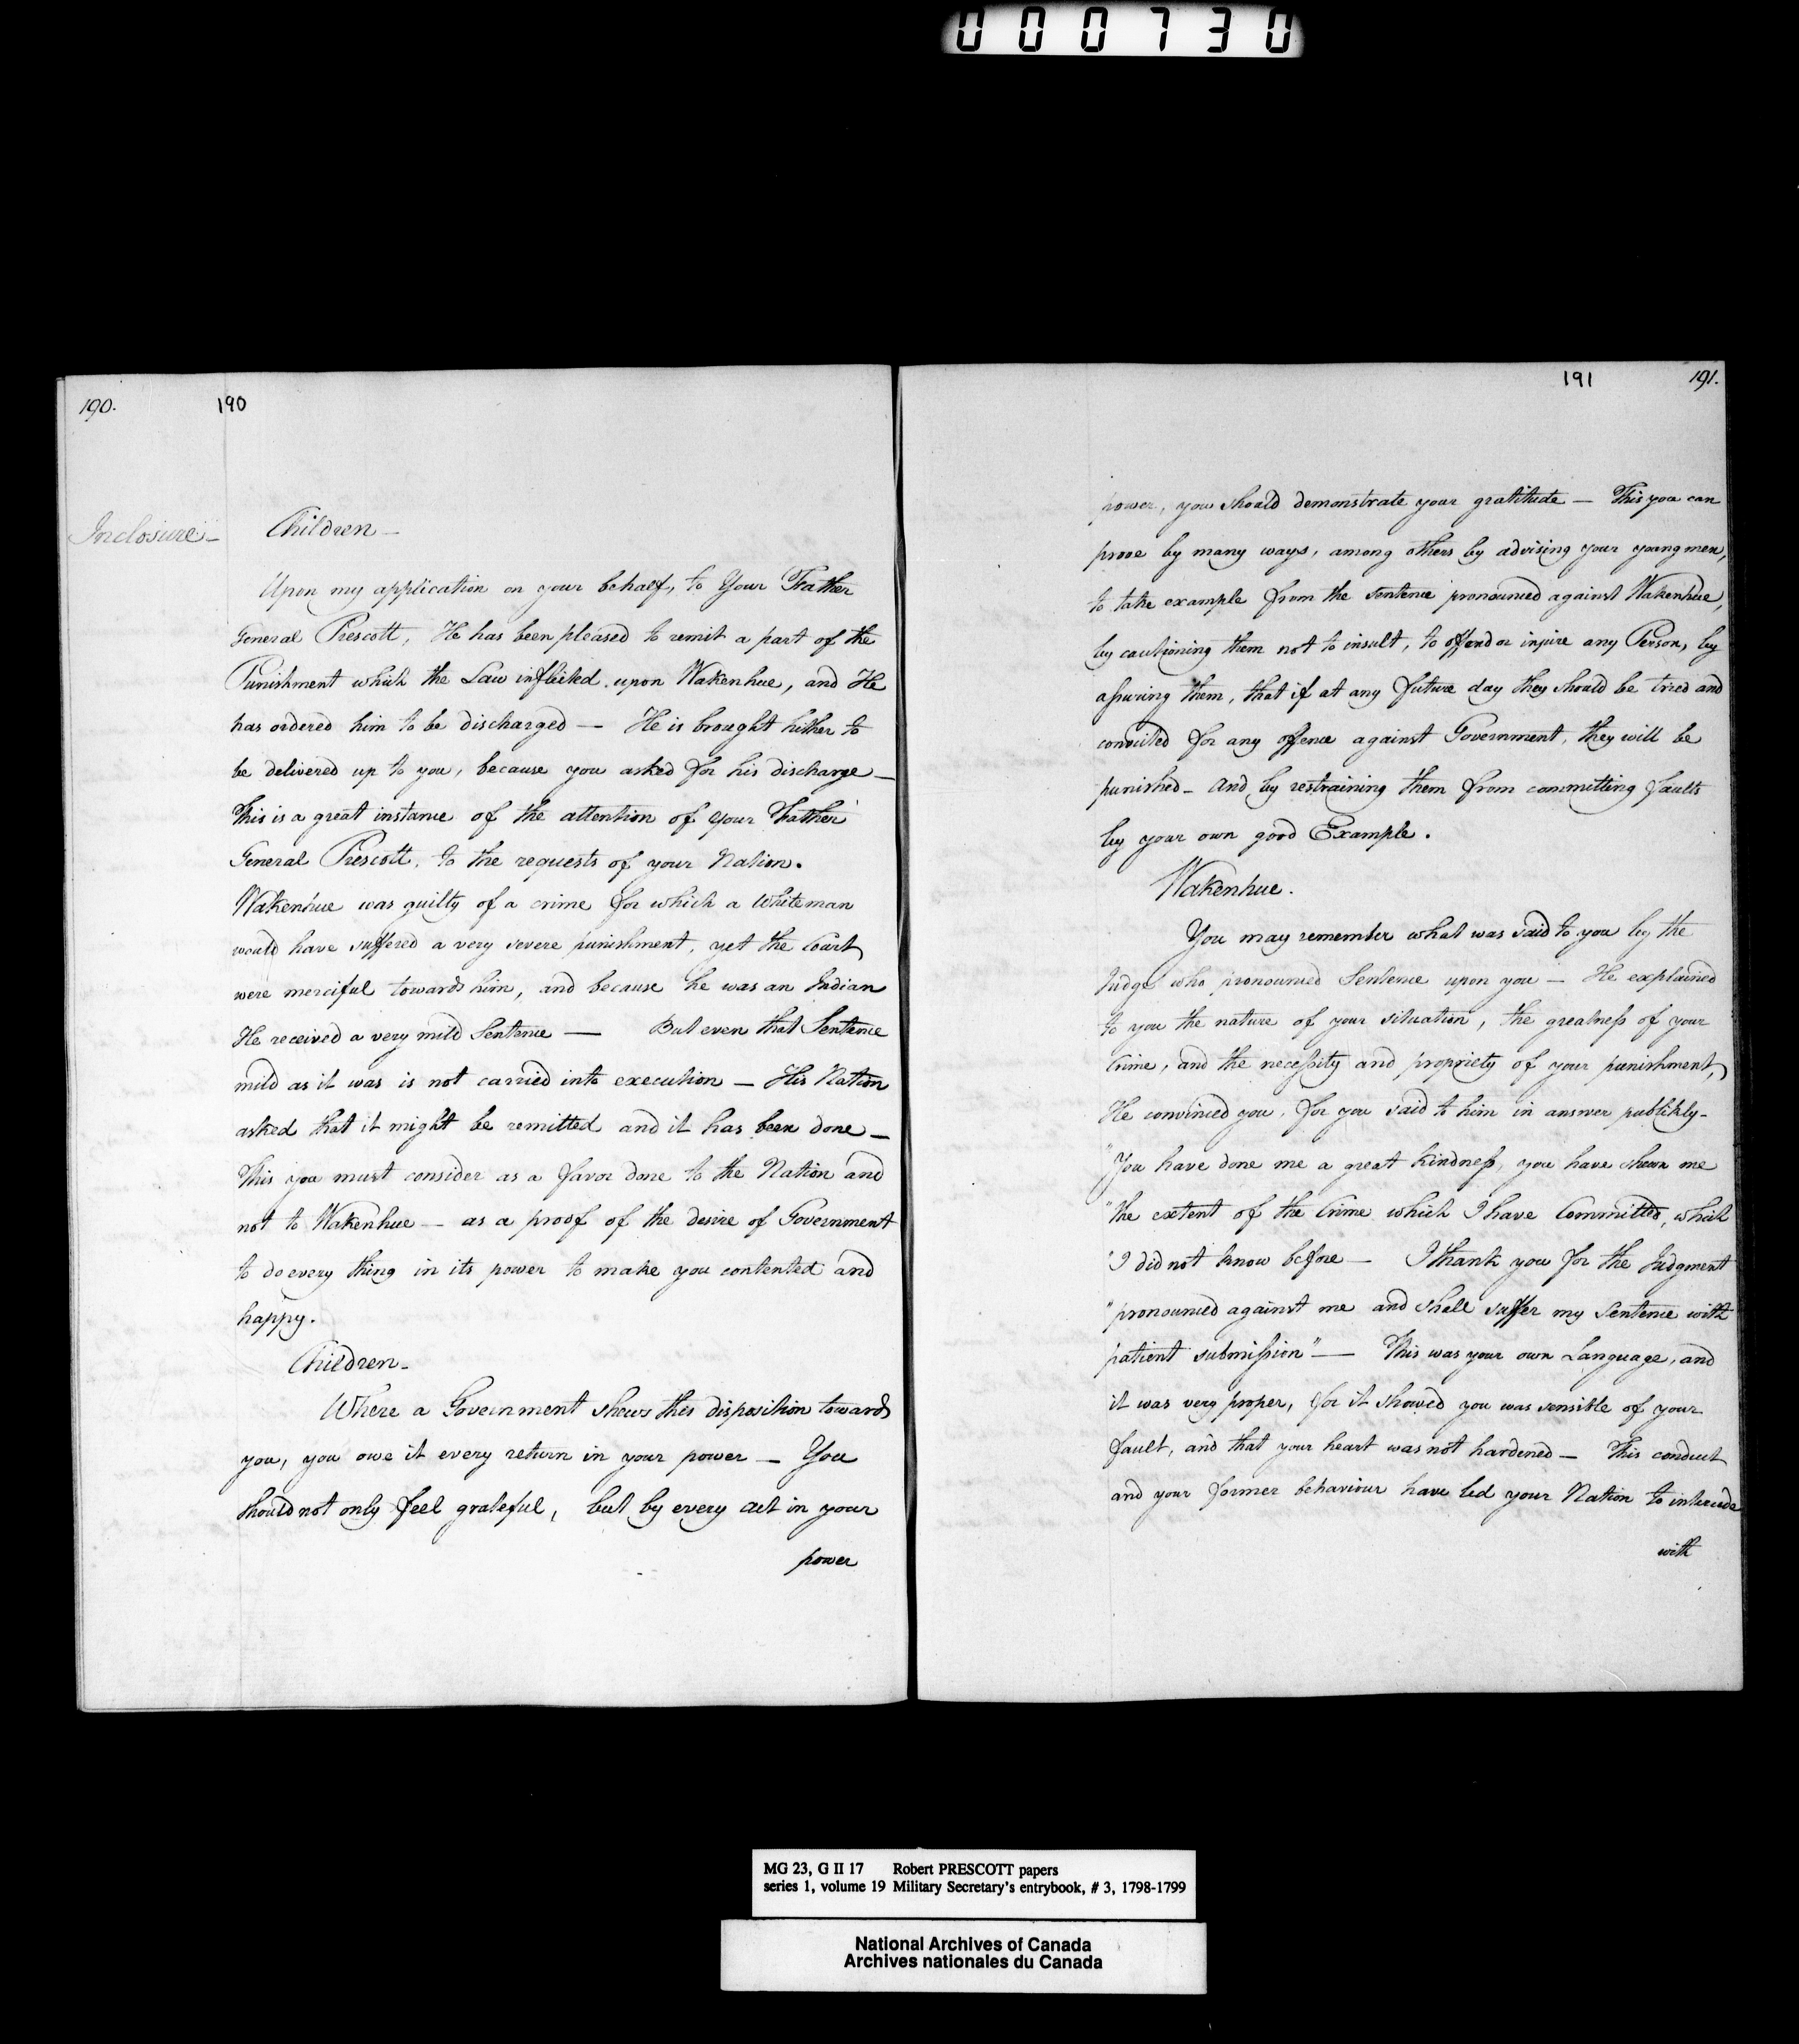 000730
190.
190
Inclosure -
Children -
Upon my application on your behalf, to Your Father
General Prescott, He has been pleased to remit a part of the
Punishment which the Law inflicted upon Wakenhue, and He
has ordered him to be discharged — He is brought hither to
be delivered up to you, because you asked for his discharge —
This is a great instance of the attention of your Father
General Prescott, to the requests of your Nation.
Wakenhue was guilty of a crime for which a White man
would have suffered a very severe punishment, yet the Court
were merciful towards him, and because he was an Indian
He received a very mild Sentence — But even that Sentence
mild as it was is not carried into execution — His Nation
asked that it might be remitted and it has been done —
This you must consider as a favor done to the Nation and
not to Wakenhue — as a proof of the desire of Government
to do every thing in its power to make you contented and
happy.
Children -
Where a Government shews this disposition towards
you, you owe it every return in your power — You
should not only feel grateful, but by every act in your
power
191
191.
power, you should demonstrate your gratitude — This you can
prove by many ways, among others by advising your young men,
to take example from the sentence pronounced against Wakenhue,
by cautioning them not to insult, to offend or injure any Person, by
assuring them, that if at any future day they should be tried and
convicted for any offence against Government, they will be
punished - and by restraining them from committing faults
by your own good Example.
Wakenhue.
You may remember what was said to you by the
Judge who pronounced Sentence upon you — He explained
to you the nature of your situation, the greatness of your
Crime, and the necessity and propriety of your punishment,
He convinced you, for you said to him in answer publikly -
"You have done me a great kindness, you have shewn me
"the extent of the Crime which I have Committed, which
"I did not know before — I thank you for the Judgment
"pronounced against me and shall suffer my Sentence with
patient submission" — This was your own Language, and
it was very proper, for it showed you was sensible of your
fault, and that your heart was not hardened — This conduct
and your former behaviour have led your Nation to intercede
with
MG 23, G II 17 Robert PRESCOTT papers
series 1, volume 19 Military Secretary's entrybook, # 3, 1798-1799
National Archives of Canada
Archives nationales du Canada